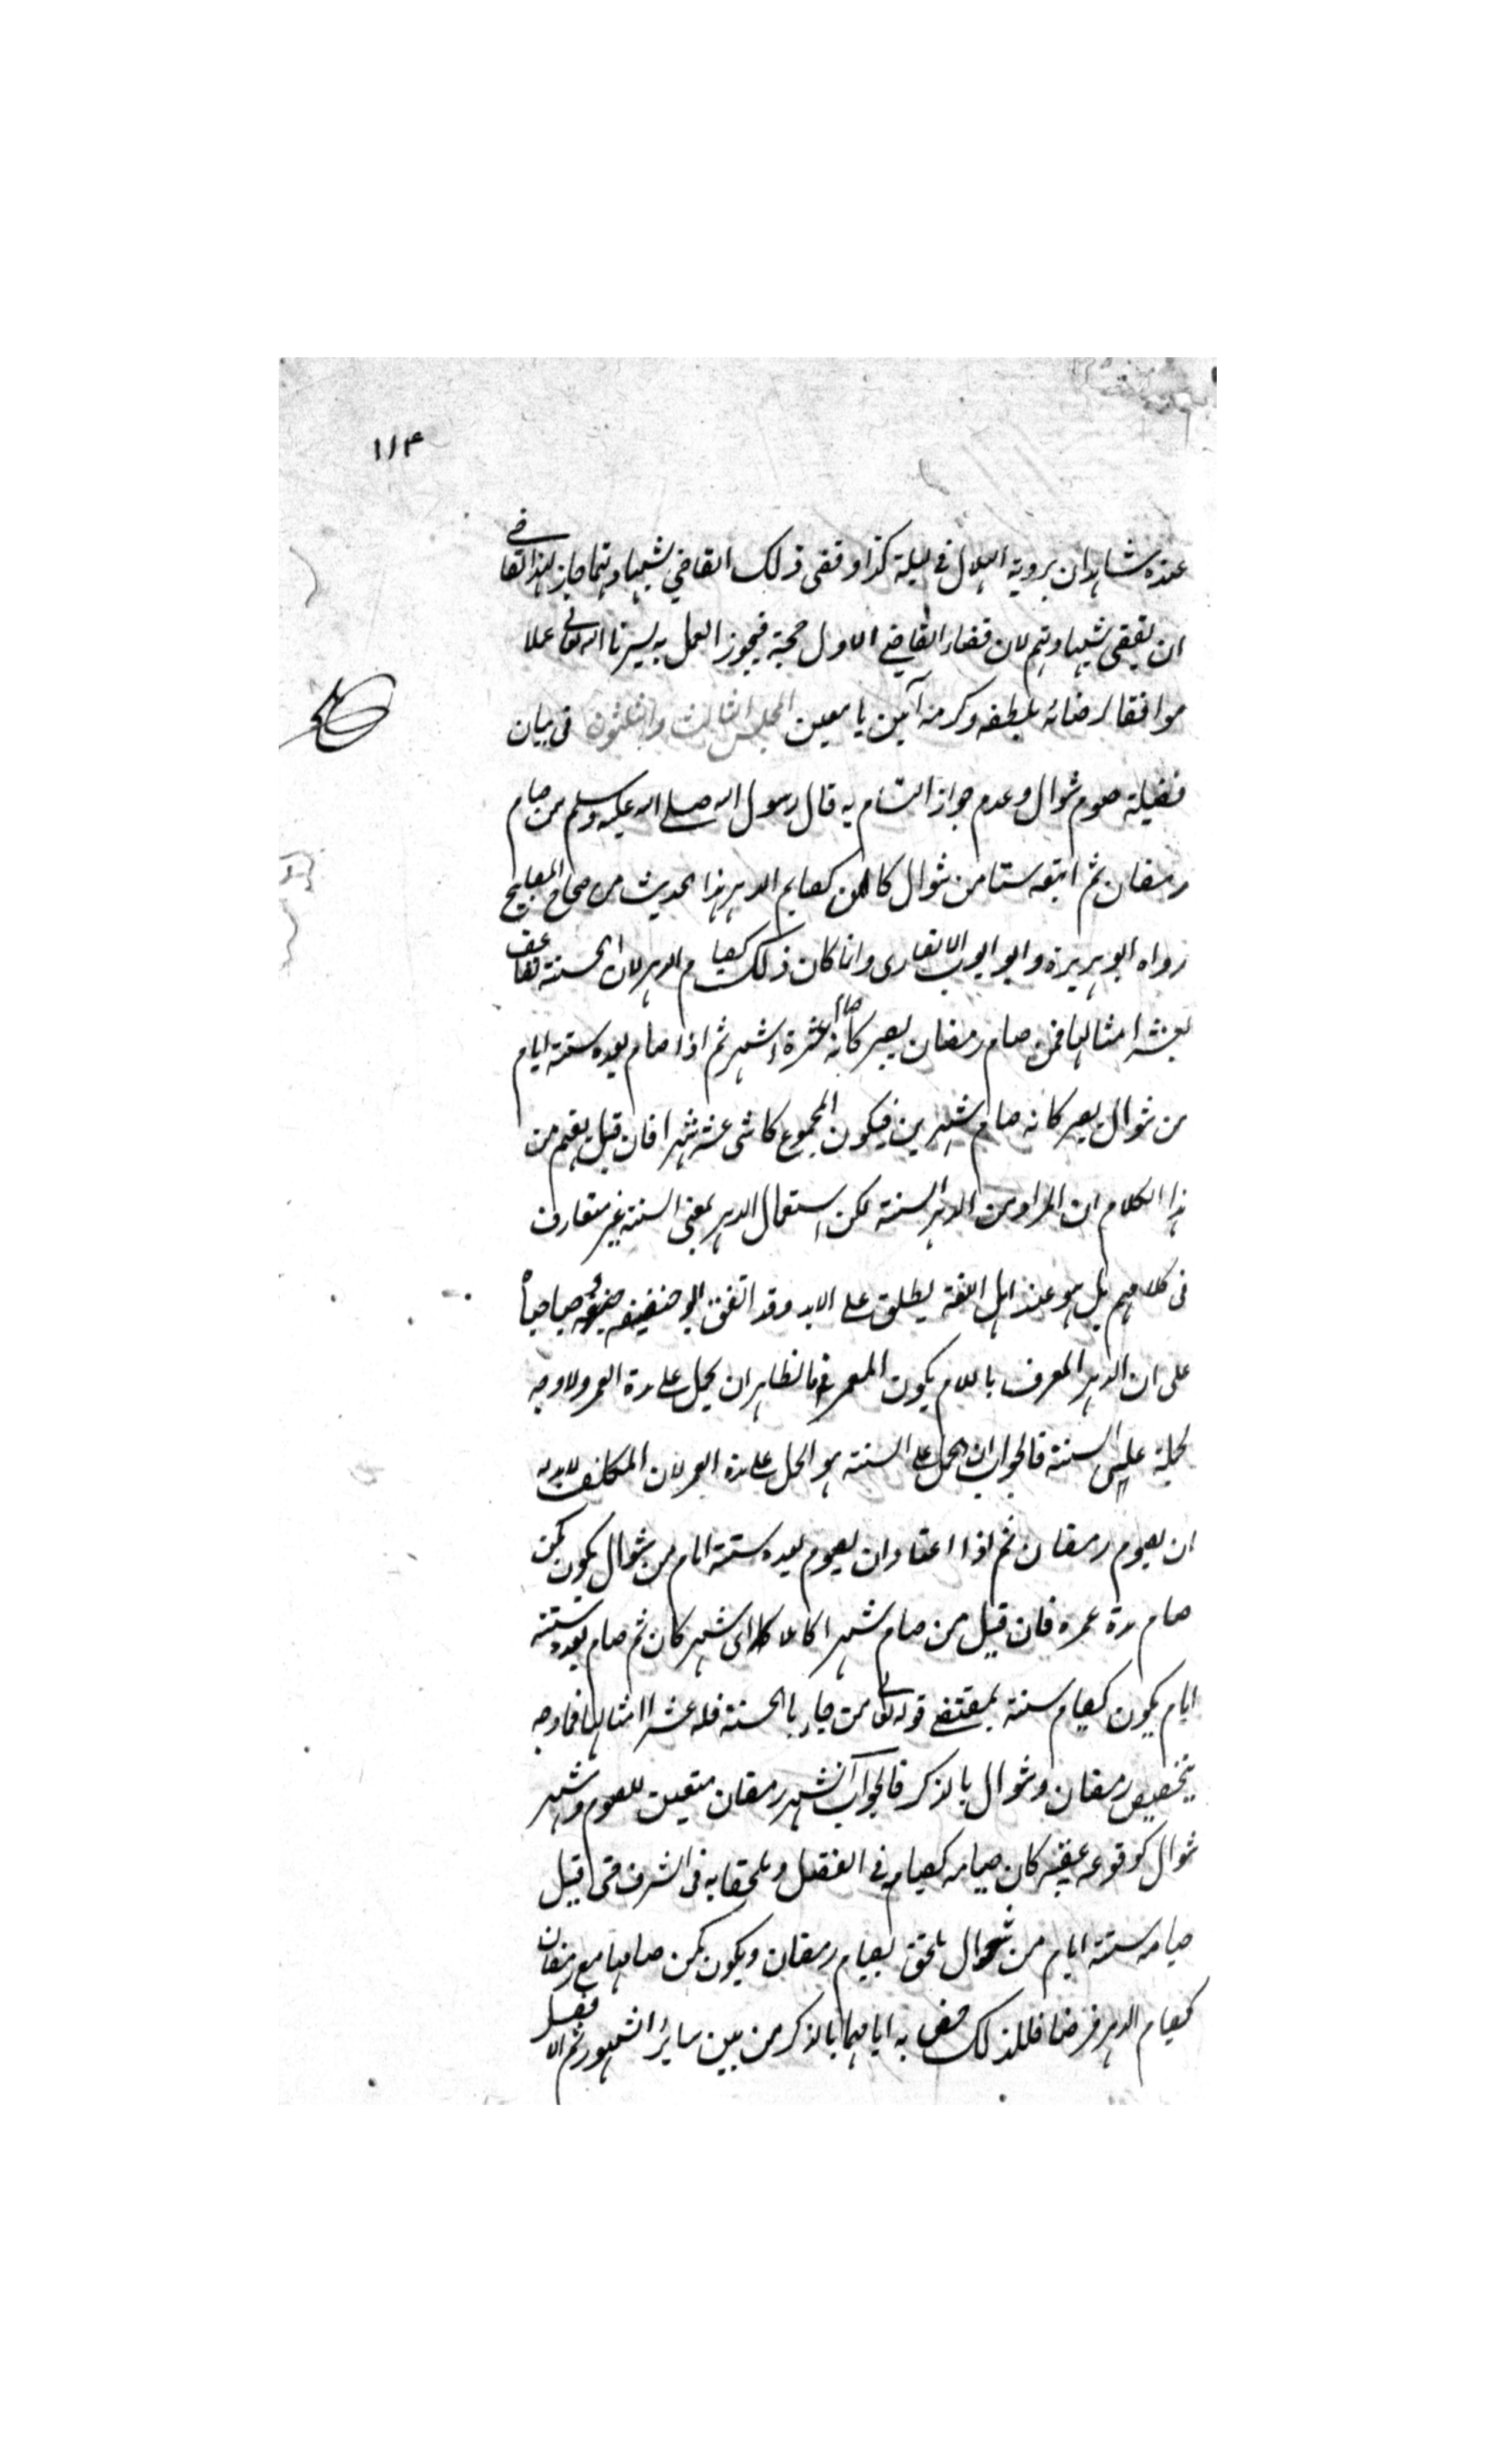 ١١٤
عنده شاهدان بروية الهلال فى ليلة كذا وقضى ذلك القاضي بشهادتهما جاز لهذا القاضے
ان يقضى بشهادتهم لان قضاء القاضے الاول حجة فيجوز العمل به يسرنا الله تعالى عملا
موافقا لرضائه بلطفه وكرمه آمين يا معين المجلس الثالث والثلثون فى بيان
فضيلة صوم شوال وعدم جواز التشام به قال رسول الله صلے الله عليه وسلم من صام
رمضان ثم اتبعه ستا من شوال كان كصايم الدهر هذا الحديث من صحاح المصابيح
رواه ابو هريرة وابو ايوب الانصارى وانما كان ذلك كصيام الدهر لان الحسنة تضاعف
بعشر امثالها فمن صام رمضان يصير كانه صام عشرة اشهر ثم اذا صام بعده ستة ايام
من شوال يصير كانه صام شهرين فيكون المجموع كاثنى عشر شهرا فان قيل يفهم من
هذا الكلام ان المراد من الدهر السنة لكن استعمال الدهر بمعنى السنة غير متعارف
فى كلامهم بل هو عند اهل اللغة يطلق على الابد وقد اتفق ابو حنيفة وصاحباه
على ان الدهر المعرف باللام يكون العمر فالظاهر ان يحمل على مدة العمر ولا وجه
لحمله على السنة فالجواب ان الحمل على السنة هو الحمل على مدة العمر لان المكلف لابد له
ان يصوم رمضان ثم اذا اعتاد ان يصوم بعده ستة ايام من شوال يكون كمن
صام مدة عمره فان قيل من صام شهرا كاملا اى شهر كان ثم صام بعده ستة
ايام يكون كصيام سنة بمقتضے قوله تعالى من جاء بالحسنة فله عشر امثالها فما وجه
تخصيص رمضان وشوال بالذكر فالجواب ان شهر رمضان متعين للصوم وشهر
شوال لوقوعه عقيبه كان صيامه كصيامه فى الفضل وملحقا به فى الشرف حتى قيل
صيامه ستة ايام من شوال يلحق بصيام رمضان ويكون كمن صامها مع رمضان
كصيام الدهر فرضا فلذلك خص به ايامهما بالذكر من بين سائر الشهور ثم الافضل